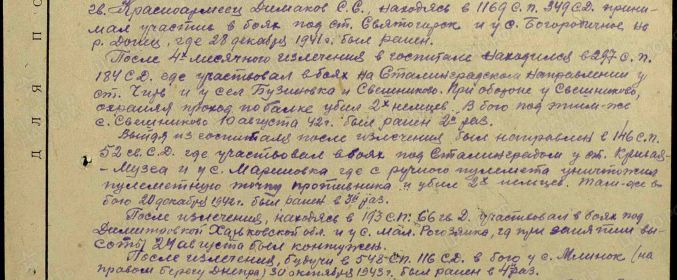 гв. Красноармеец Димаков С.С., находясь в 1169 С.П. 349 С.Д. прини-
мал участие в боях под ст. Святогорск и у с. Богородичное на
р. Донец, где 28 декабря 1941 г. был ранен.
После 4х месячного излечения в госпитале находился в 297 с.п.
184 С.Д. где участвовал в боях на Сталинградском направлении у
ст. Чир и у сел Бузиновка и Свешниково. При обороне у Свешниково,
охраняя проход по балке убил 2х немцев. В бою под этим-же
с. Свешниково 10 августа 42 г. был ранен 2й раз.
Выйдя из госпиталя после излечения был направлен в 146 С.П.
52 гв. С.Д. где участвовал в боях под Сталинградом у ст. Кривая-
-Музга и у с. Мариновка где с ручного пулемета уничтожил
пулеметную точку противника и убил 2х немцев. Там-же в
бою 20 декабря 1942 г. был ранен в 3й раз.
После излечения, находясь в 193 С.П. 66 гв. Д. участвовал в боях под
Димитровкой Харьковской обл. и у с. Мал. Рогозянка, где при занятии вы-
соты 24 августа был контужен.
После излечения, будучи в 548 С.П. 116 С.Д. в бою у с. Млинок (на
правом берегу Днепра) 30 октября 1943 г. был ранен в 4й раз.
Д Л Я П О